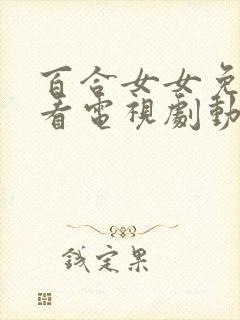 百合女女免
看電視劇動
鐵定果